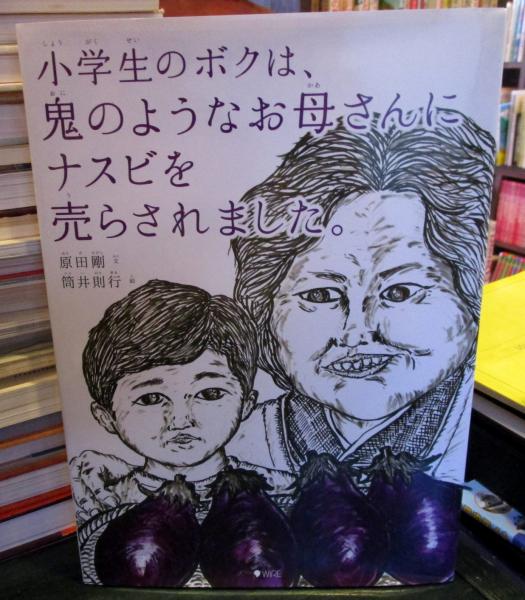 小学生のボクは、
鬼のようなお母さんに
ナスビを
売らされました。
原田剛 文
筒井則行 絵
WIRE